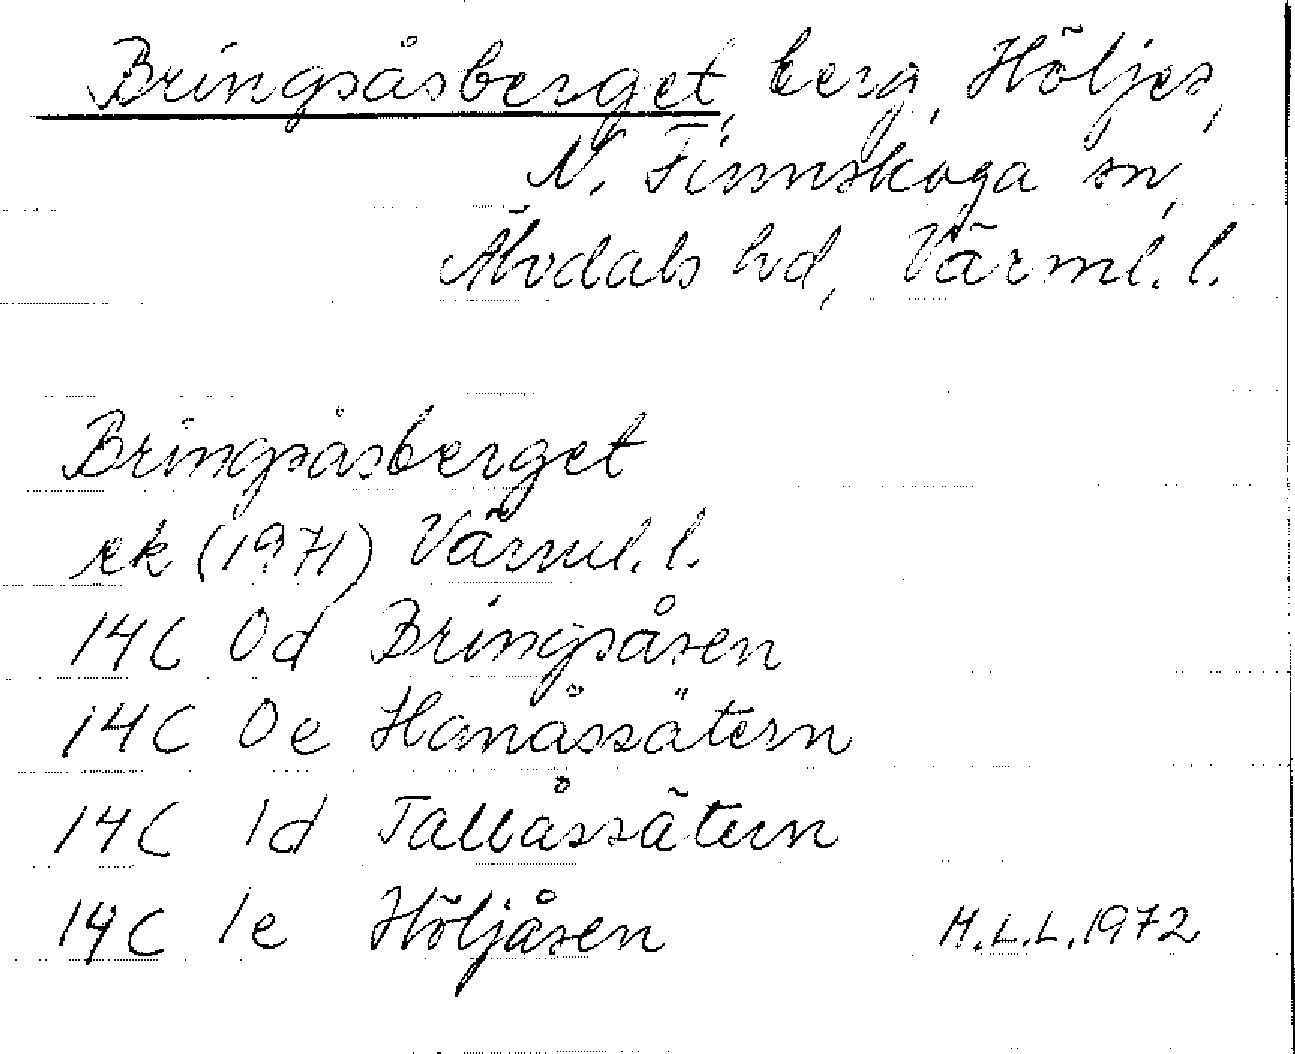 Bringsåsberget, berg, Höljes,
N. Finnskoga sn,
Älvdals hd, Värml. l.
Bringsåsberget
ek (1971) Värml. l.
14C 0d Bringsåsen
14C 0e Hanåssätern
14C 1d Tallåssätern
14C 1e Höljåsen M.L.L. 1972